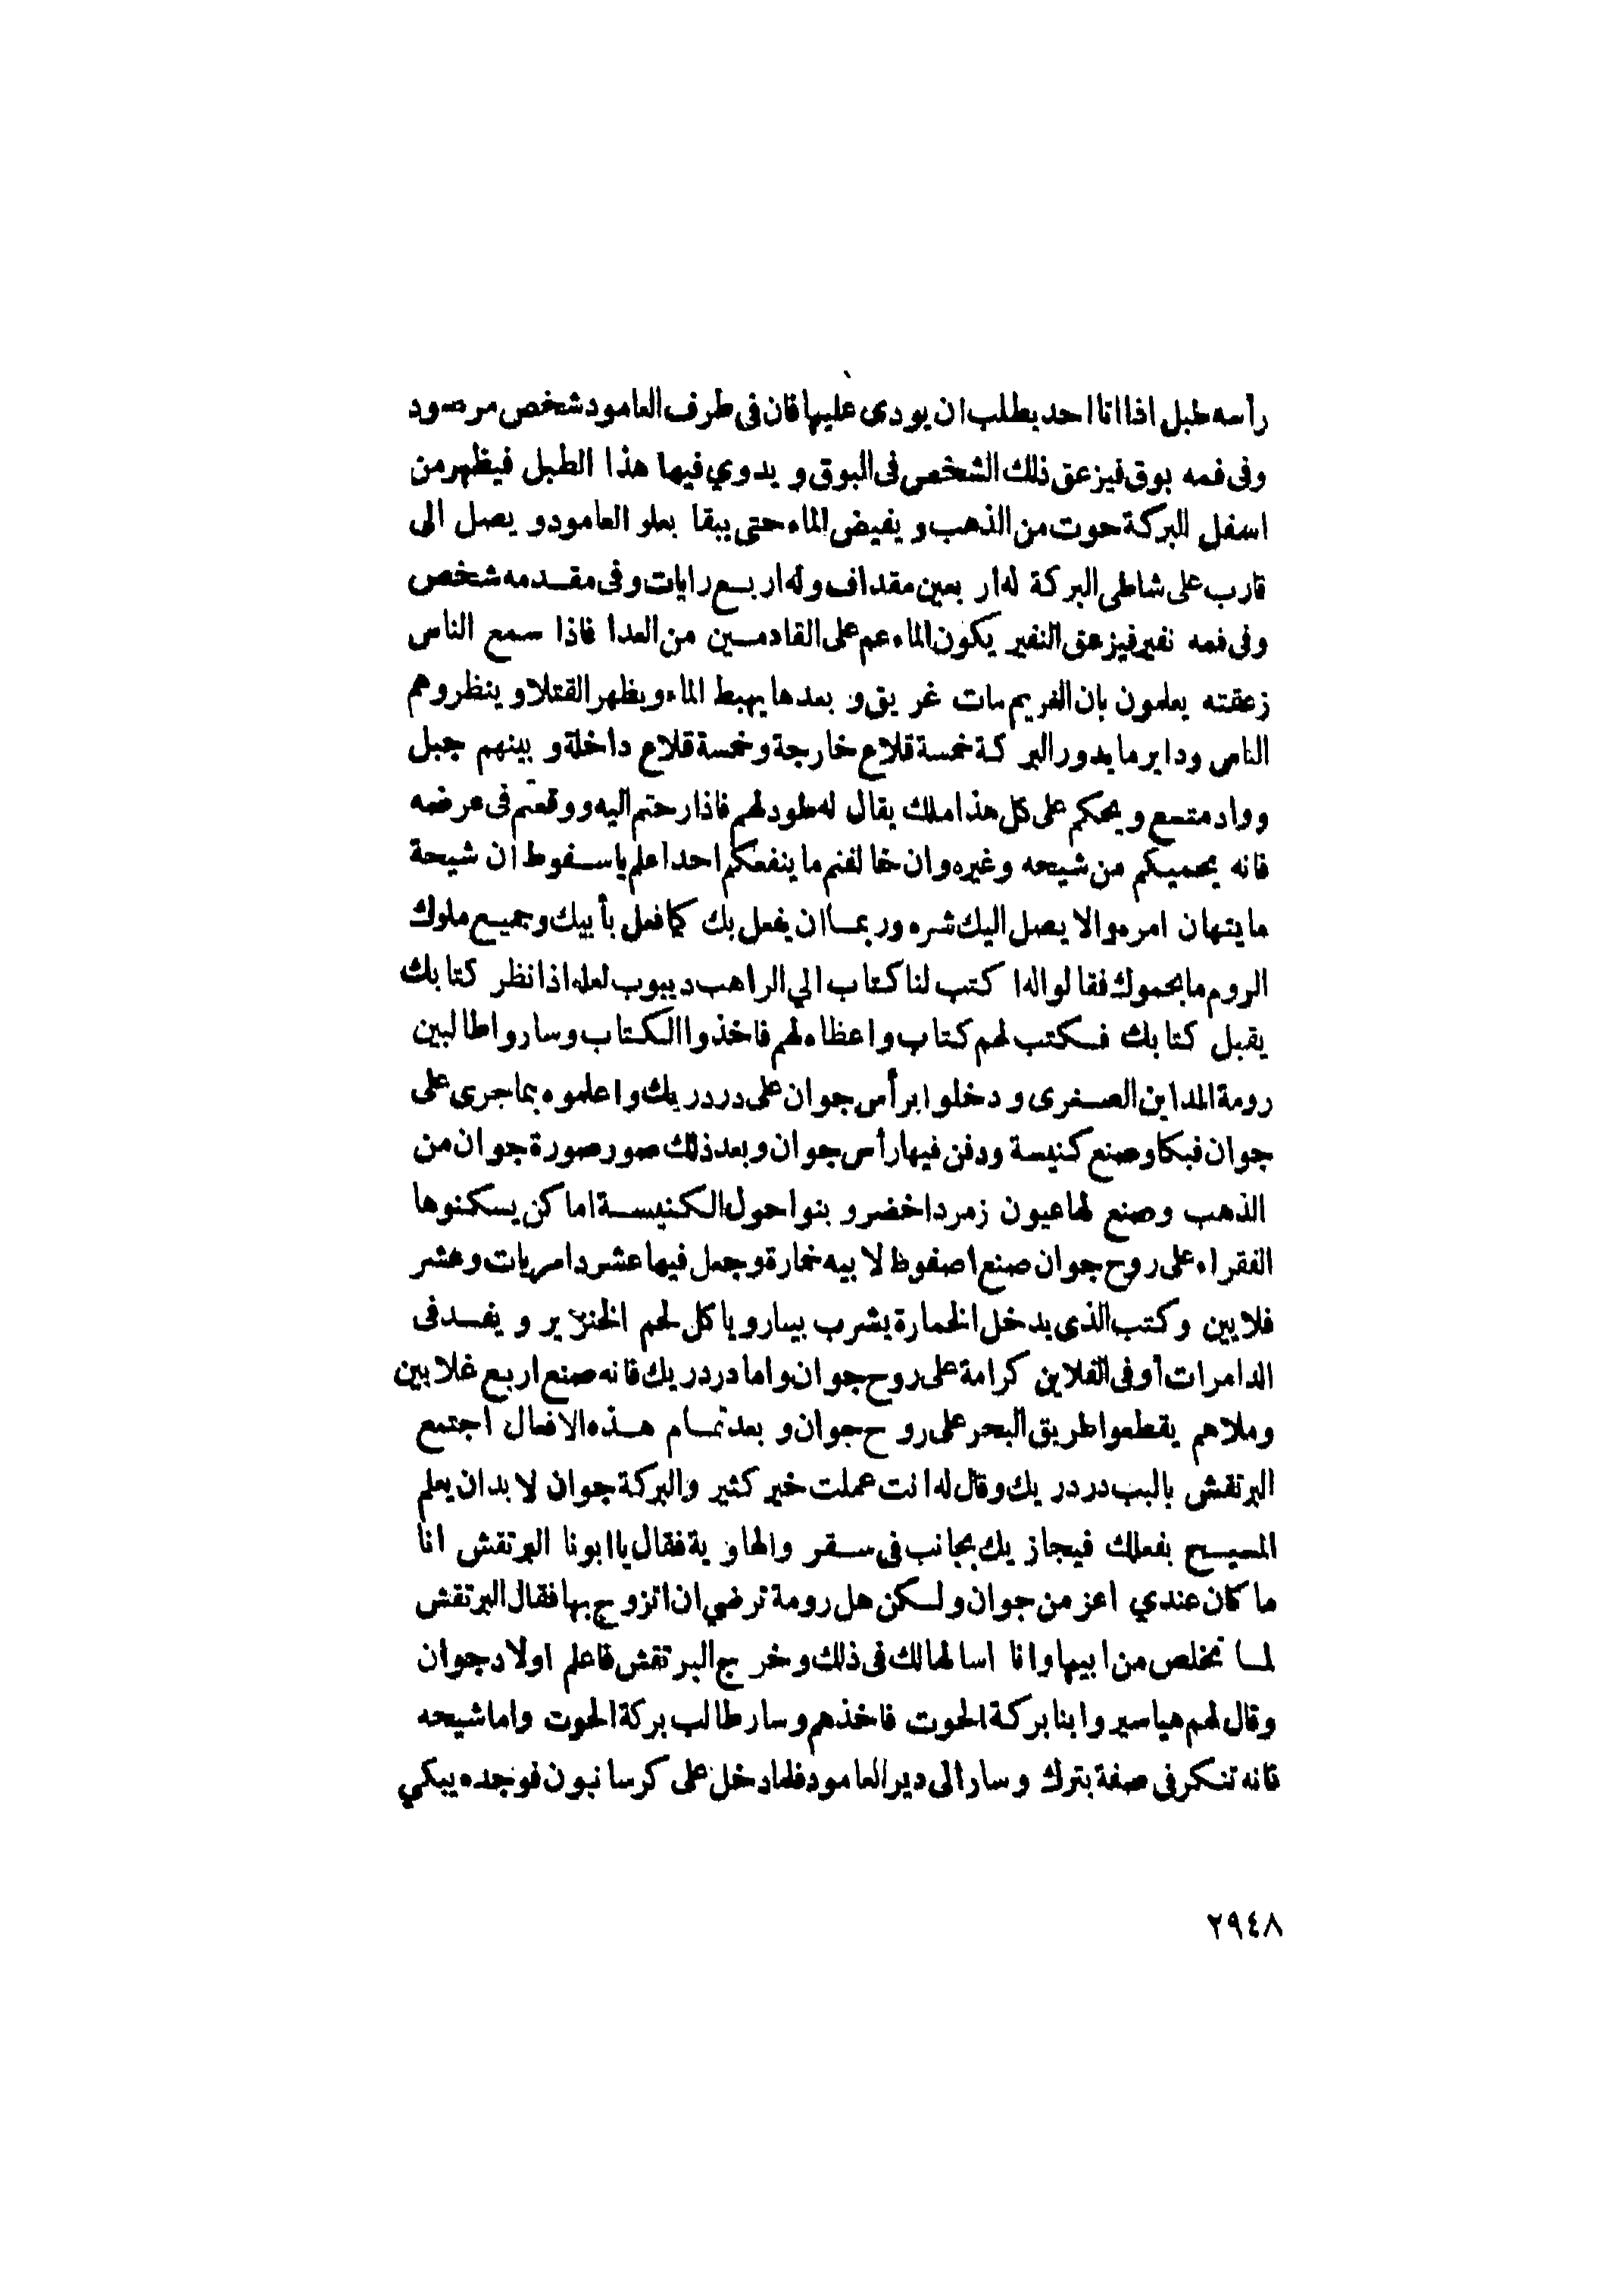 رأسه طبل اذا اتا احد يطلب ان يودى عليها فان فى طرف العامود شخص مرصود
وفى فمه بوق فيزعق ذلك الشخص فى البوق و يدوي فيها هذا الطبل فيظهر من
اسفل البركة حوت من الذهب و يفيض الماء حتى يبقا بعلو العامود و يصل الى
قارب على شاطى البركة له ار بعين مقداف وله اربع رايات وفى مقدمه شخص
وفى فمه نفير فيزعق النفير يكون الماء عم على القادمين من العدا فاذا سمع الناس
زعقته يعلمون بان الغريم مات غريق و بعدها يهبط الماء ويظهر القتلا و ينظروهم
الناس وداير ما يدور البركة خمسة قلاع خارجة وخمسة قلاع داخلة و بينهم جبل
وواد متسع ويحكم على كل هذا ملك يقال له طود لهم فاذا رحتم اليه ووقعتم فى عرضه
فانه يحميكم من شيحه وغيره وان خالفتم ما ينفعكم احد اعلم يا سفوط ان شيحة
ما يتهان امره والا يصل اليك شره وربما ان يفعل بك كما فعل بأبيك وجميع ملوك
الروم ما يحموك فقالوا له ا كتب لنا كتاب الي الراهب ديبوب لعله اذا نظر كتابك
يقبل كتابك فكتب لهم كتاب واعطاه لهم فاخذوا الكتاب وساروا طالبين
رومة المداين الصغرى و دخلوا برأس جوان على دردريك واعلموه بما جرى على
جوان فبكا وصنع كنيسة ودفن فيها رأس جوان و بعد ذلك صور صورة جوان من
الذهب وصنع لها عيون زمرد اخضر و بنوا حول الكنيسة اماكن يسكنوها
الفقراء على روح جوان صنع اصفوط لابيه خمارة وجعل فيها عشر دامريات وعشر
فلايين وكتب الذى يدخل الخمارة يشرب ببسار وياكل لحم الخنزير و يفسد فى
الدامرات أو فى الفلاين كرامة على روح جوان واما دردريك فانه صنع اربع غلابين
وملاهم يقطعوا طريق البحر على روح جوان و بعد تمام هذه الافعال اجتمع
البرتقش بالبب دردريك وقال له انت عملت خير كثير والبركة جوان لابد ان يعلم
المسيح بفعلك فيجازيك بجانب فى سقر والهاوية فقال يا ابونا البرتقش انا
ما كان عندي اعز من جوان ولكن هل رومة ترضي ان اتزوج بها فقال البرتقش
لما تخلص من ابيها وانا اسالها لك فى ذلك وخرج البرتقش فاعلم اولاد جوان
وقال لهم هيا سيروا بنا بركة الحوت فاخذهم وسار طالب بركة الحوت واما شيحه
فانه تنكر فى صفة بترك وسار الى دير العامود فلما دخل على كرسانبون فوجده يبكي
٢٩٤٨